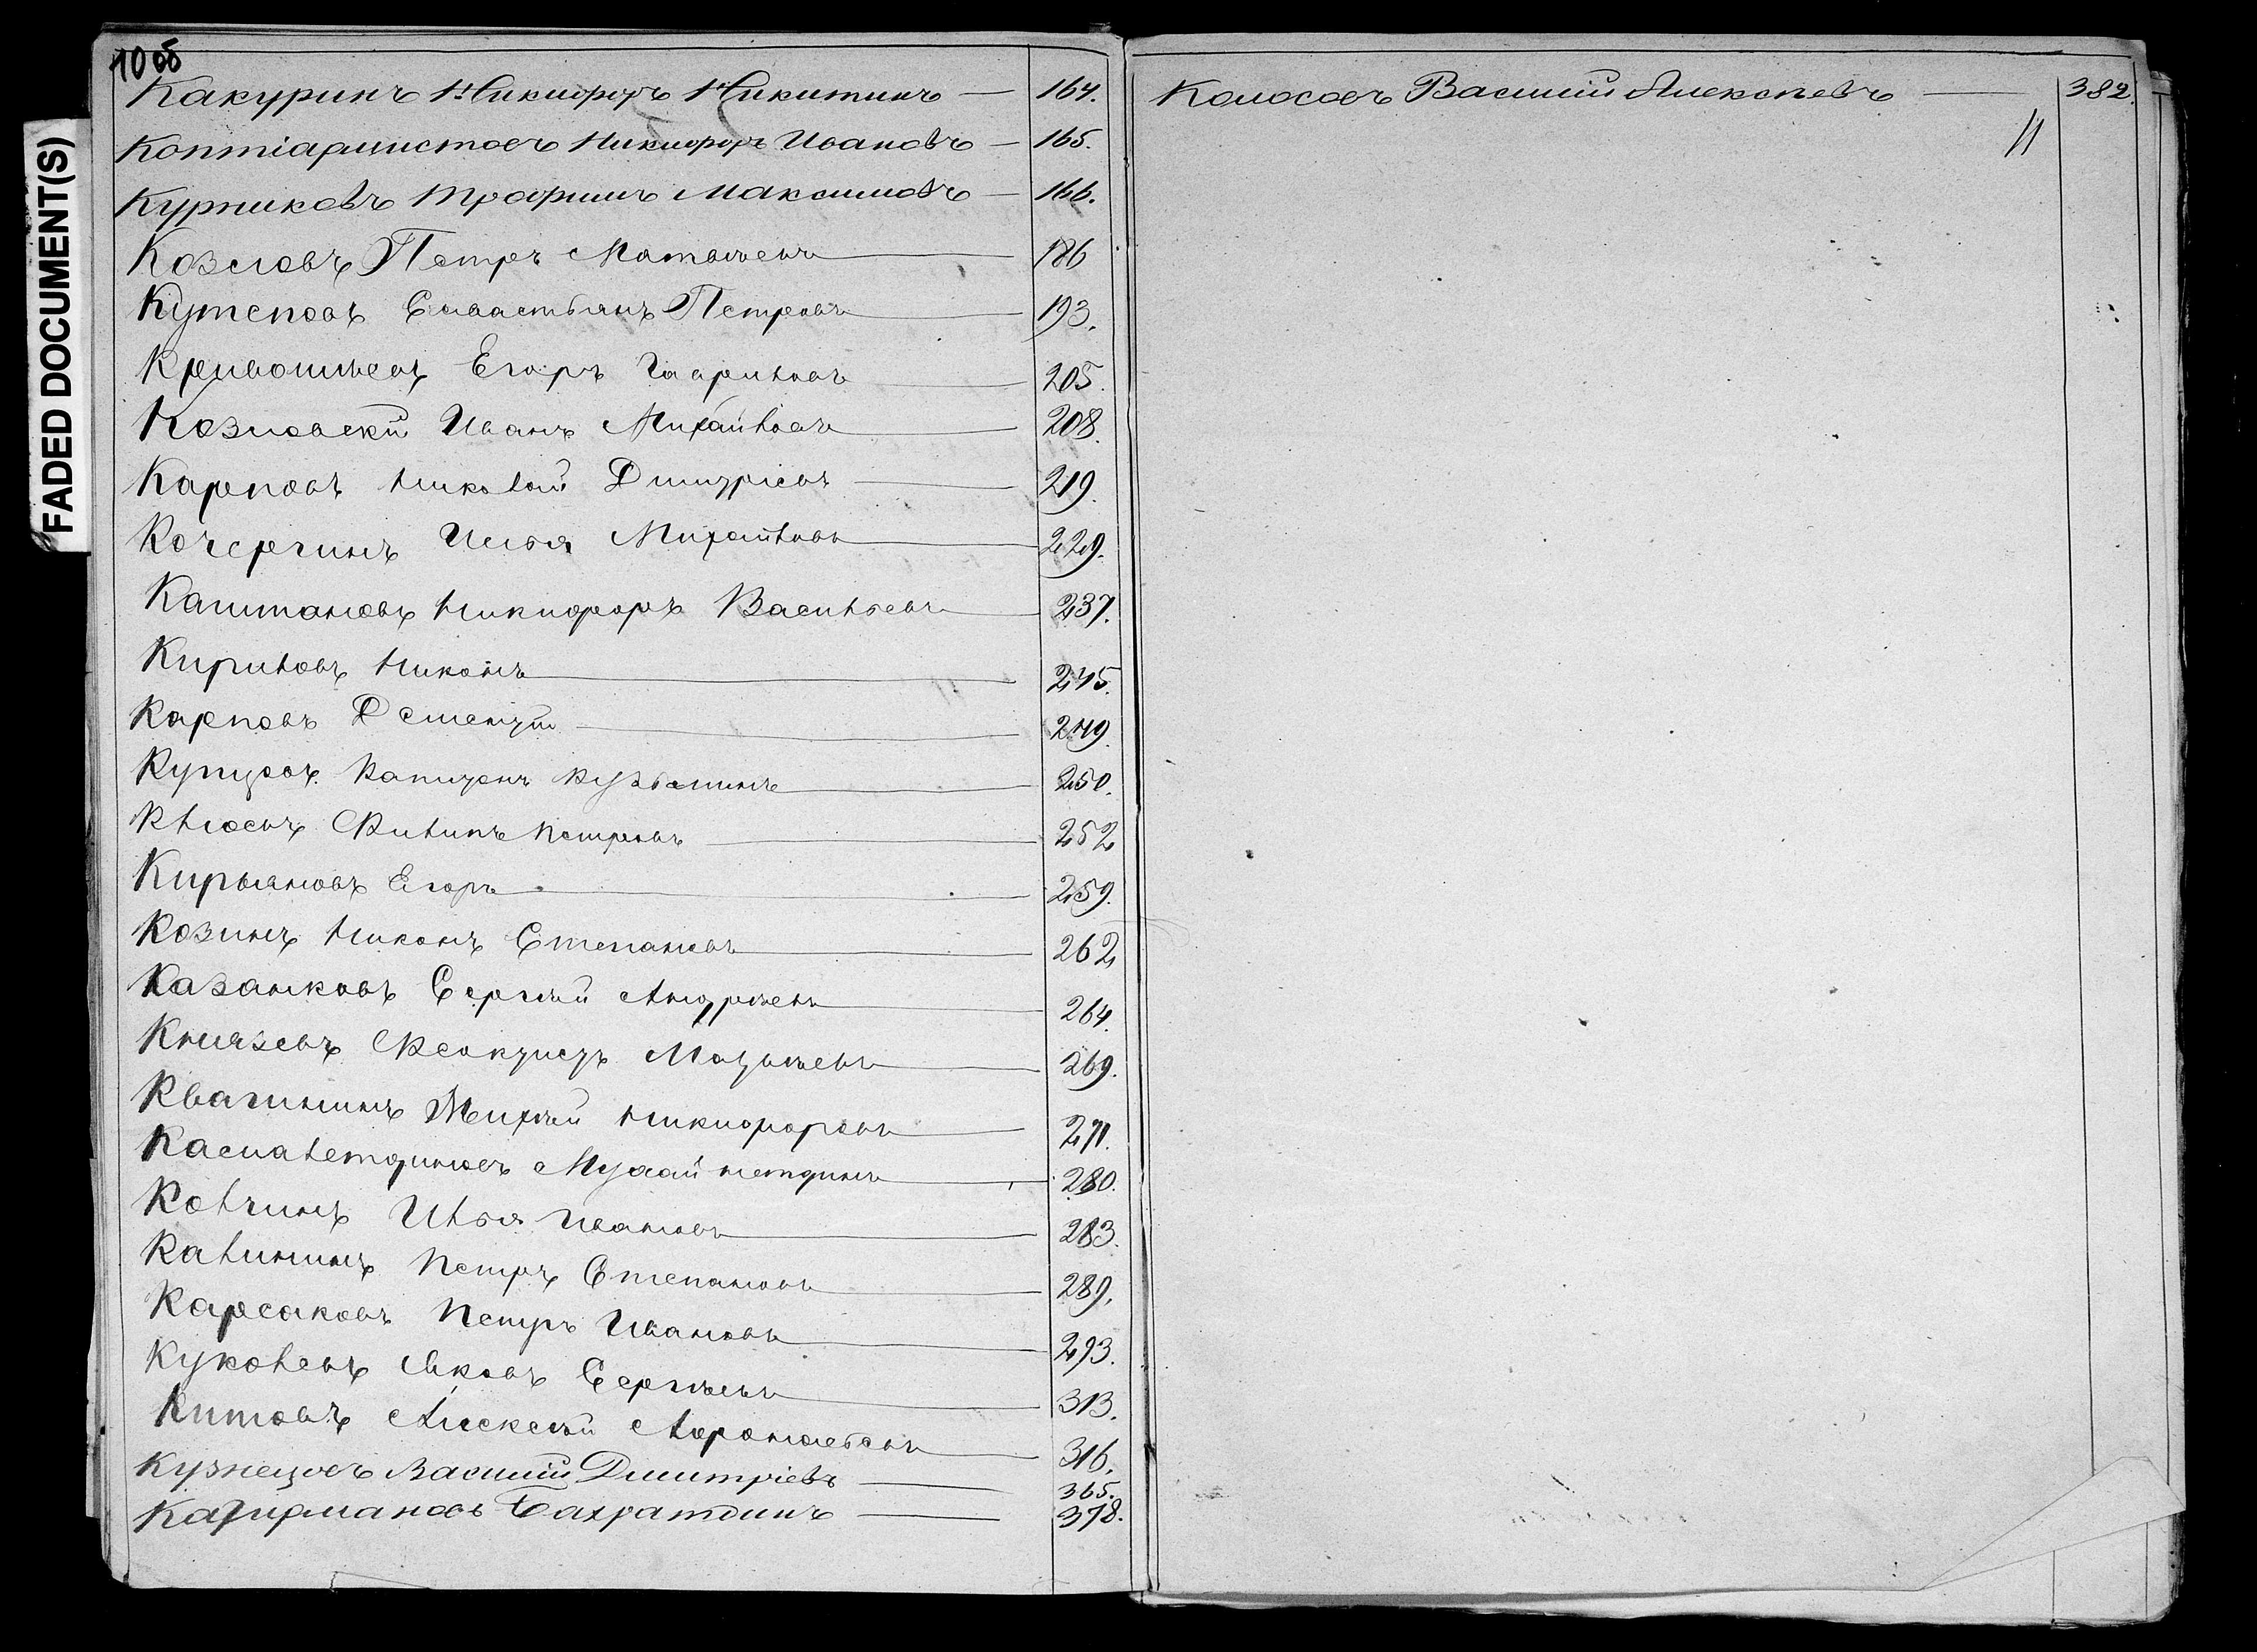 10 об
FADED DOCUMENT(S)
Какуринъ Никифоръ Никитинъ — 164.
Никифоръ Ивановъ — 165.
Курниковъ Трофимъ Максимовъ — 166.
Козловъ Петръ Матвѣевъ 186
Кутеповъ Севастьянъ Петровъ 193.
Кривошѣевъ Егоръ Гавриловъ 205.
Козловскій Иванъ Михайловъ 208.
Карповъ Николай Дмитріевъ 219.
Кочергинъ Илья Михайловъ 229.
Каштановъ Никифоръ Васильевъ 237.
Кириловъ Никонъ 245.
Карповъ Дементій 249.
Купцовъ Капитонъ Кузьминъ 250.
Клюевъ Филипъ Петровъ 252
Кирьяновъ Егоръ 259.
Козинъ Никонъ Степановъ 262
Казанковъ Сергѣй Андрѣевъ 264.
Князевъ Феоктистъ Матвѣевъ 269.
Квагининъ Михѣй Никифоровъ 271.
280.
Ковчинъ Илья Ивановъ 283.
Калининъ Петръ Степановъ 289.
Карсаковъ Петръ Ивановъ 293.
Куколевъ Яковъ Сергѣевъ 313.
Китовъ Алексѣй Афонасьевъ 316.
Кузнецовъ Василій Дмитріевъ 365.
378.
Колосовъ Василій Алексѣевъ 382.
11